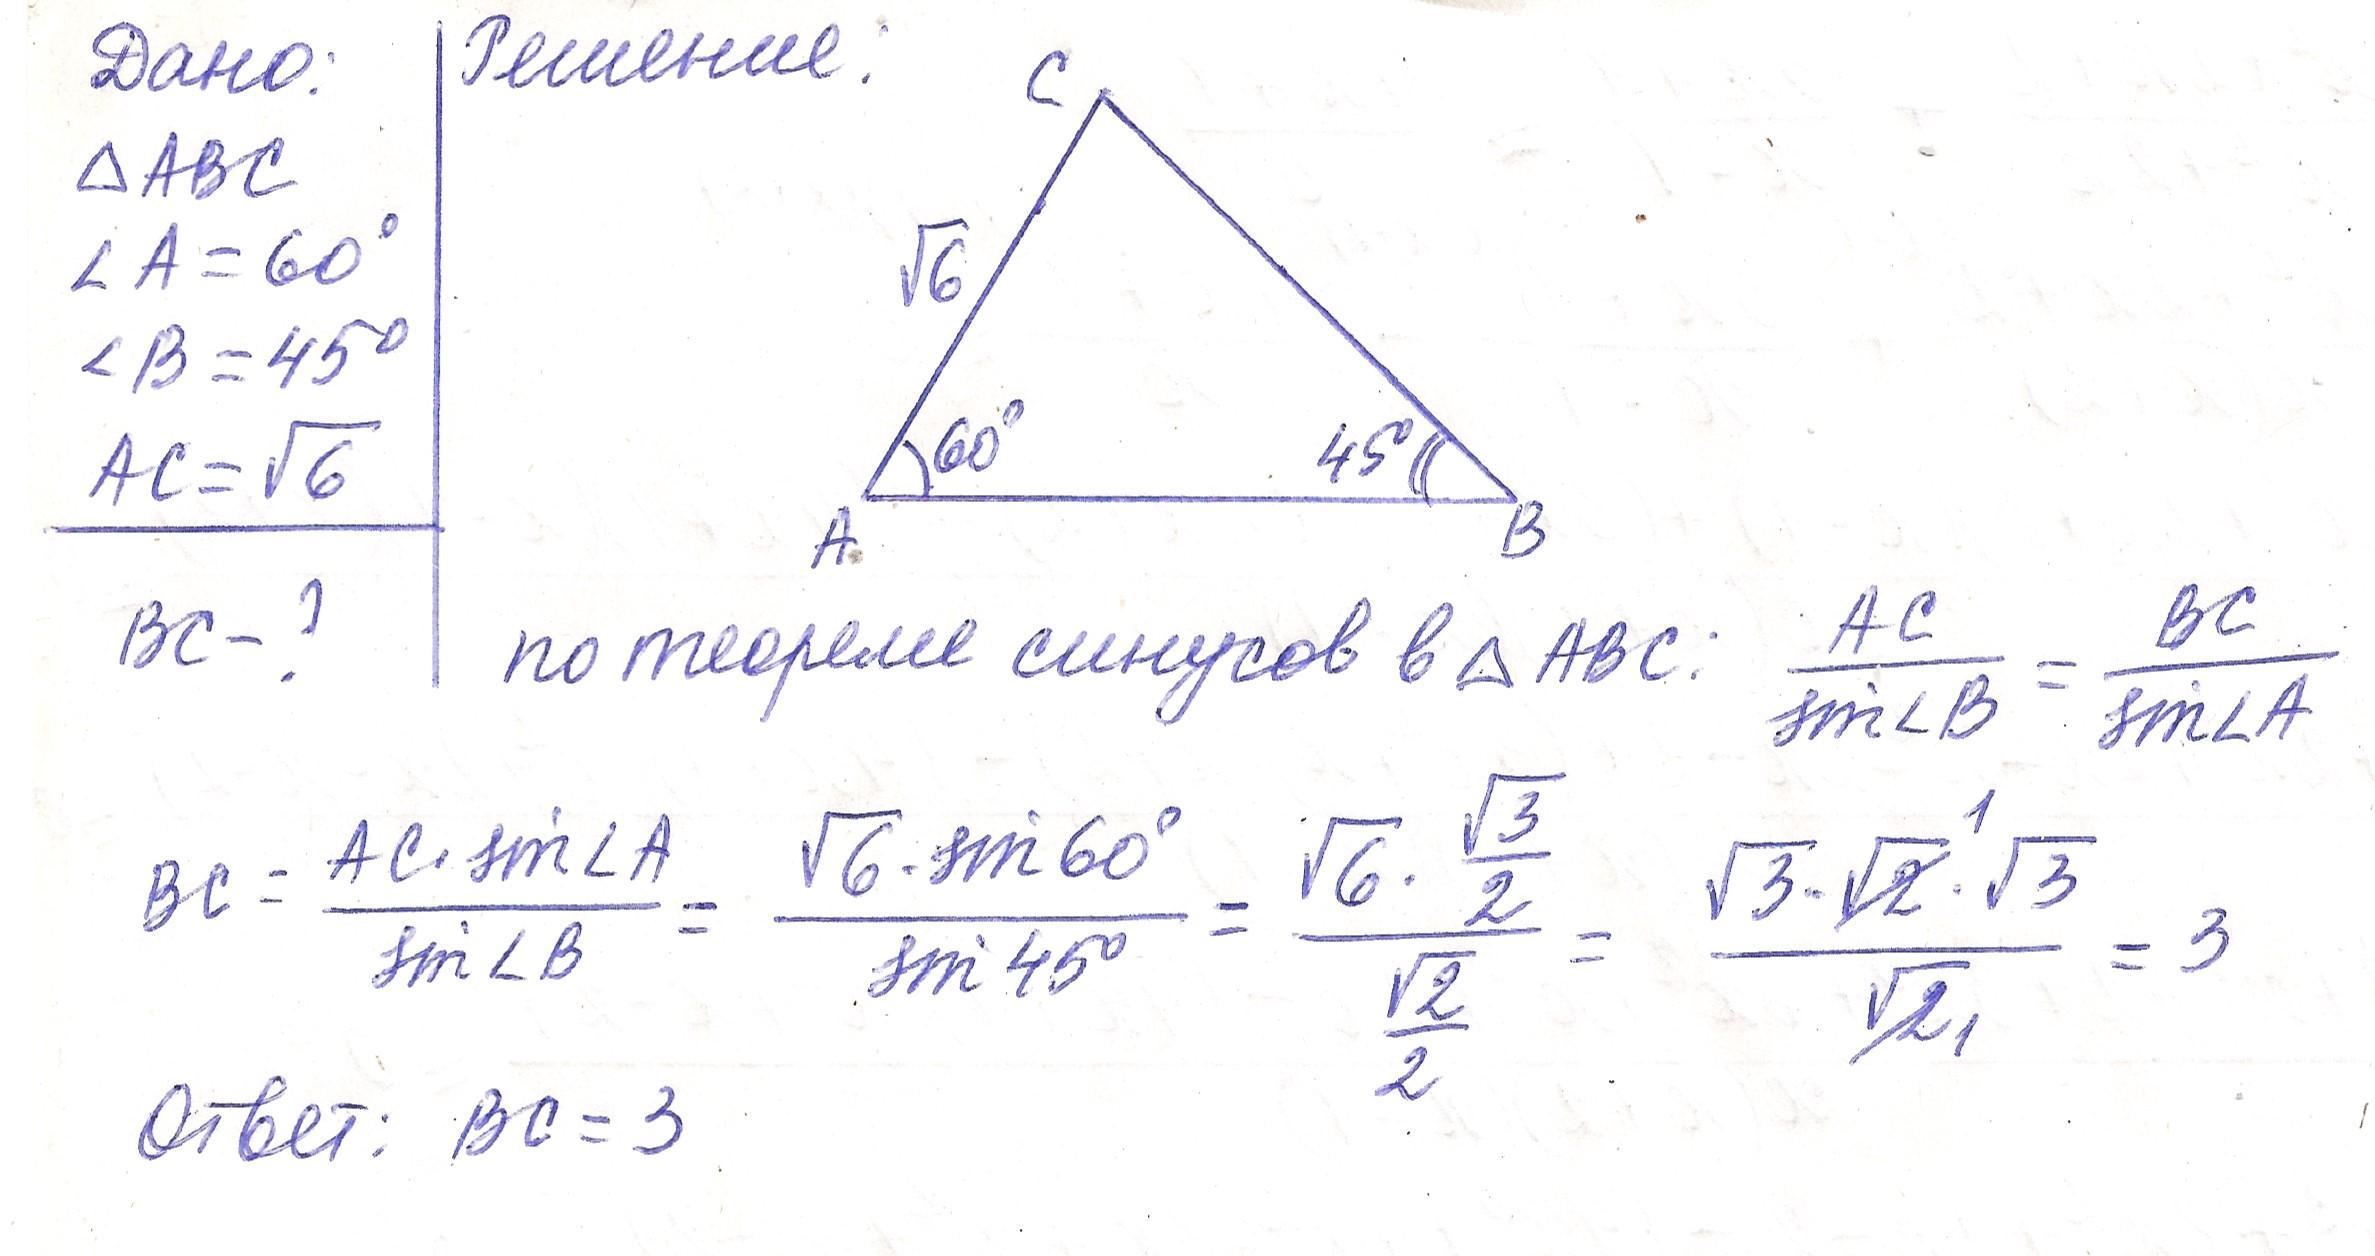 Дано:
△ABC
∠A=60°
∠B=45°
AC=√6
BC-?
Решение:
C
√6
60°
45°
A
B
по теореме синусов в △ABC: AC/sin∠B = BC/sin∠A
BC = AC·sin∠A/sin∠B = √6·sin60°/sin45° = (√6·√3/2)/(√2/2) = √3·√2¹·√3/√2₁ = 3
Ответ: BC=3